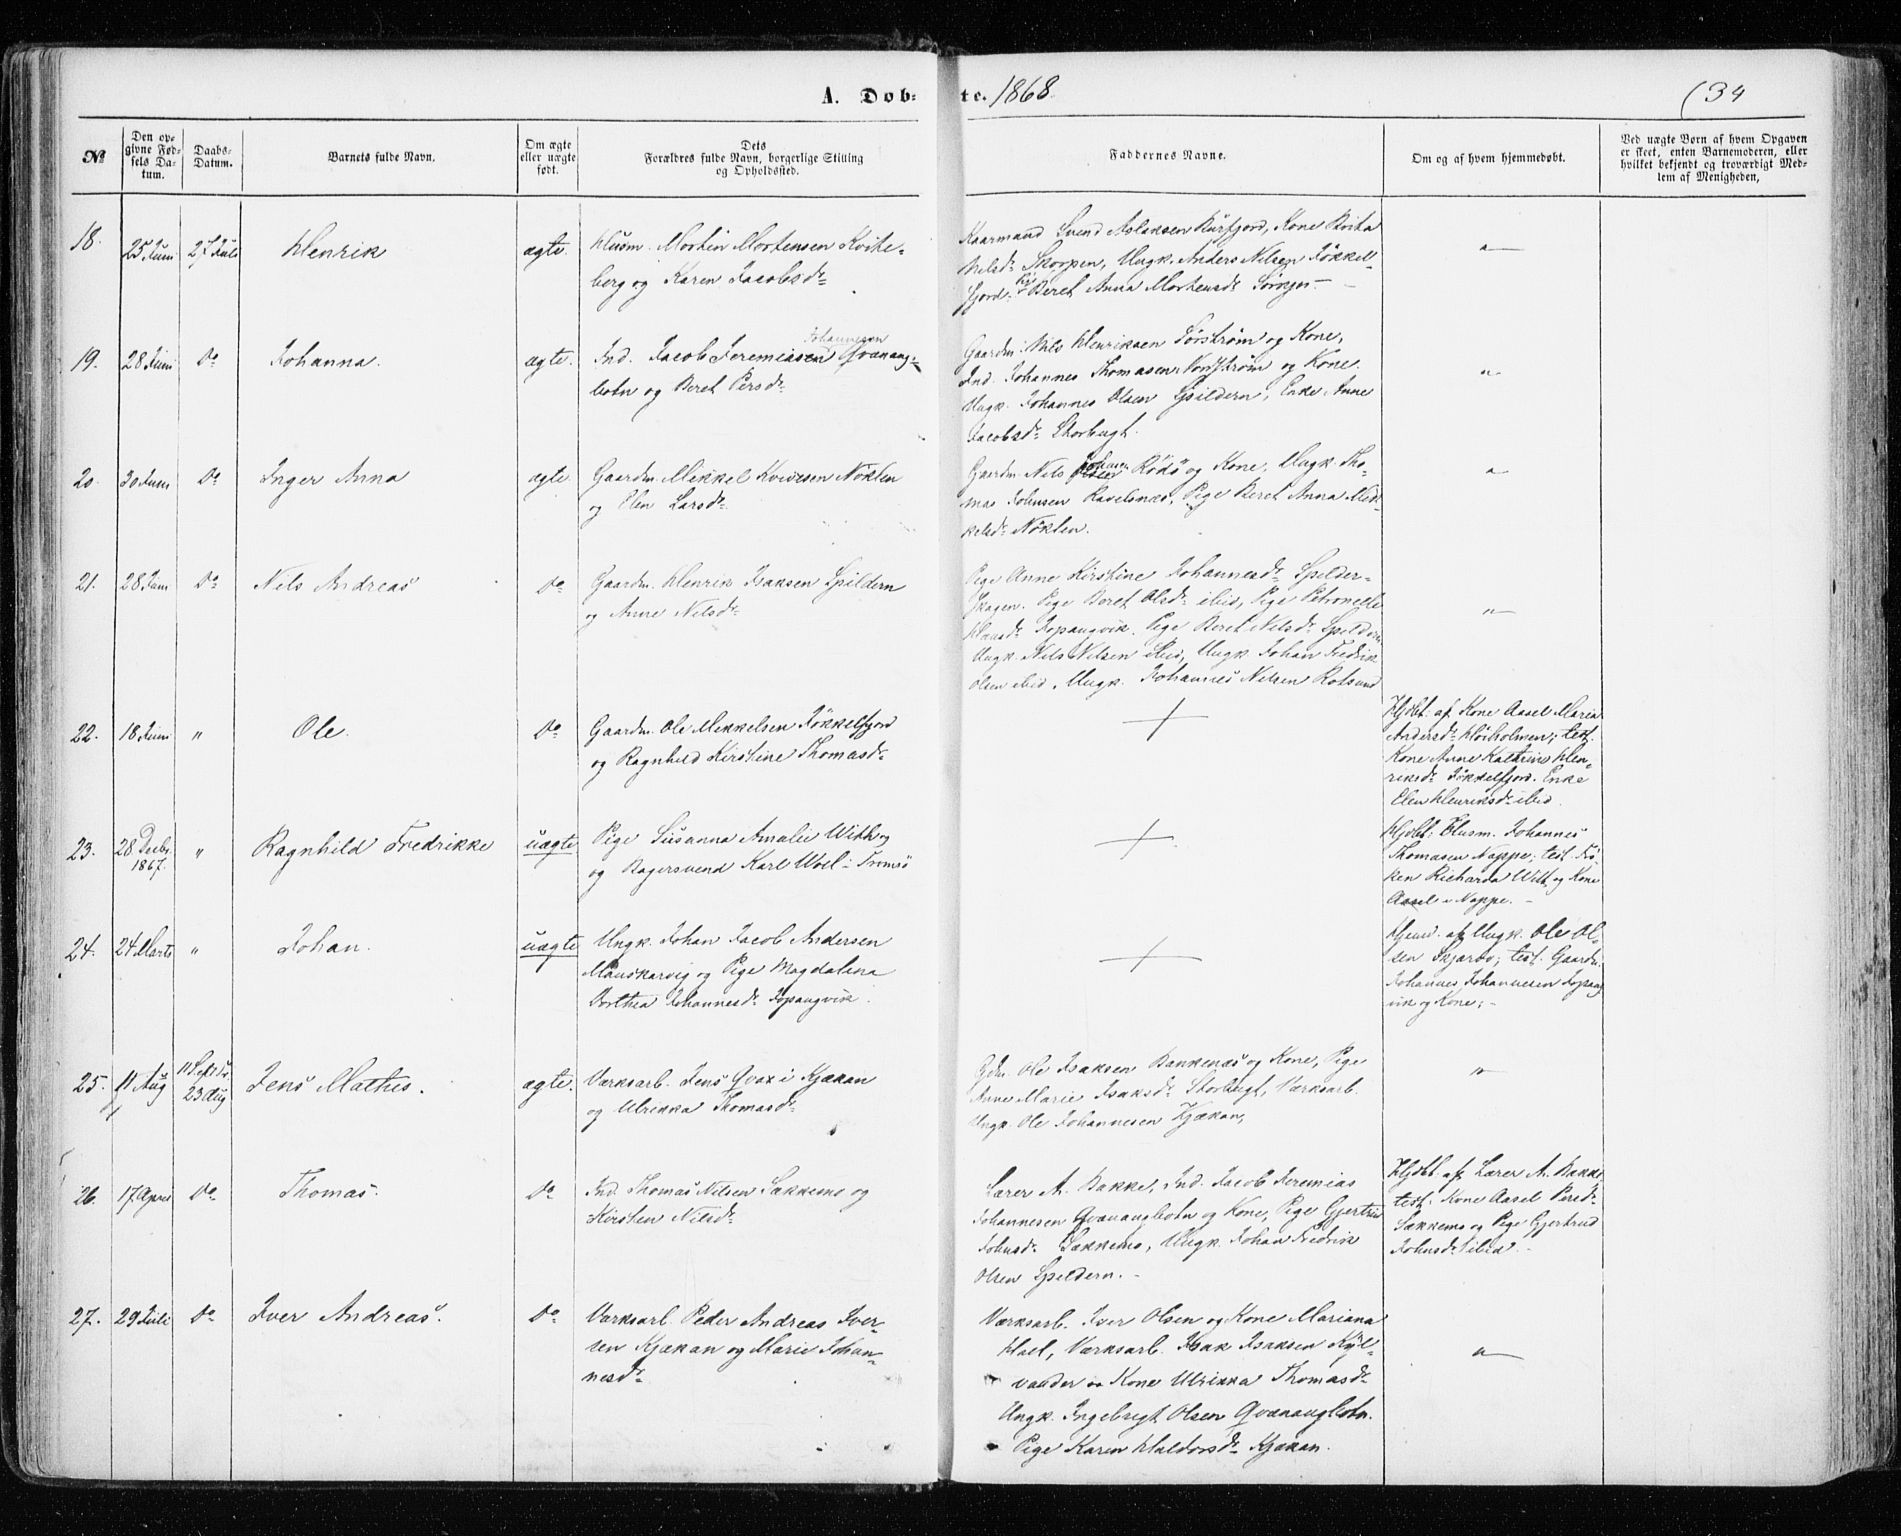 A. Døb-
te. 1868.
(34
No
Den op-
givne Fød-
sels Da-
tum.
Daabs-
Datum.
Barnets fulde Navn.
Om ægte
eller uægte
født.
Dets
Forældres fulde Navn, borgerlige Stilling
og Opholdssted.
Faddernes Navne.
Om og af hvem hjemmedøbt.
Ved uægte Børn af hvem Opgaven
er skeet, enten Barnemoderen, eller
hvilket bekjendt og troværdigt Med-
lem af Menigheden,
18. 25 Juni 27 Juli Henrik ægte. Husm. Mortin Mortensen Kvite-
berg og Karen Jacobsdr
Kaarmand Svend Aslaksen Burfjord, Kone Berita
Nilsdr Skorpen, Ungk. Anders Nilsen Jøkkel-
fjord. Pige Beret Anna Mortensdr
19. 28 Juni Do Johanna. ægte. Ind. Jacob Jeremiasen Johannesen Qvænang-
botn og Beret Persdr
Gaardm: Nils Henriksen Sørstrøm og Kone,
Ind. Johannes Thomasen Nordstrøm og Kone.
Ungk. Johannes Olsen Spildern, Enke Anne
Jacobsdr Storbugt.
20. 30 Juni Do Inger Anna ægte. Gaardm. Mikkel Kvivesen Nøklen
og Elen Larsdr
Gaardm. Nils Johnsen Rødø og Kone, Ungk. Tho-
mas Johnsen Ravelsnæs, Pige Beret Anna Mik-
kelsdr Nøklen.
21. 28 Juni Do Nils Andreas Do Gaardm. Henrik Isaksen Spildern
og Anne Nilsdr
Pige Anne Kirstine Johannesdr Spilder-
skagen. Pige Beret Olsdr ibid, Pige Petronelle
Hansdr Jopangvik. Pige Beret Nilsdr Spildern
Ungk. Nils Nilsen ibid, Ungk. Johan Fredrik
Olsen ibid. Ungk. Johannes Nilsen Rotsund
22. 18 Juni " Ole. Do Gaardm. Ole Mikkelsen Jøkkelfjord
og Ragnhild Kirstine Thomasdr
Hjdbt. af Kone Aasel Maria
Andersdr Høiholmen; test.
Kone Anne Katrine Hen-
riksdr Jøkkelfjord. Enke
Elen Henriksdr ibid.
23. 28 Decbr
1867. " Ragnhild Fredrikke uægte Pige Susanna Amalie With
og Bagersvend Karl Woel i Tromsø
Hjdbt: Husm. Johannes
Thomasen Nappe; test. Frø-
ken Richarda With og Kone
Aasel i Nappe. -
24. 24 Marts " Johan. uægte Ungk. Johan Jacob Andersen
Mauskarvig og Pige Magdalena
Dorthea Johannesdr Jopangvik.
Hjemd. af Ungk. Ole Ol-
sen Skjærvø; test. Gaardm.
Johannes Johannesen Jopang-
vik og Kone; -
25. 11 Aug 11 Sept
23 Aug Jens Mathis. ægte. Værksarb. Jens Qvax i Kjækan
og Ulrikka Thomasdr
Gdm. Ole Isaksen Bankenæs og Kone, Pige
Anne Marie Isaksdr Storbugt, Værksarb.
Ungk. Ole Johannesen Kjækan,
26. 17 April Do Thomas. Do Ind. Thomas Nilsen Sækkemo og
Kirsten Nilsdr
Lærer A. Bakke, Ind. Jacob Jeremias
Johannesen Qvænangbotn og Kone, Pige Gjertrud
Johnsdr Sækkemo, Ungk. Johan Fredrik
Olsen Spildern. -
Hjdbt. af Lærer A. Bakke,
test. Kone Aasel Persdr
Sækkemo og Pige Gjertrud
Johnsdr ibid. -
27. 29 Juli Do Iver Andreas. Do Værksarb. Peder Andreas Iver-
sen Kjækan og Marie Johan-
nesdr
Værksarb. Iver Olsen og Kone Mariana
Hall, Værksarb. Isak Isaksen Kyl-
vander og Kone Ulrikka Thomasdr
Ungk. Ingebrigt Olsen Qvænangbotn.
Pige Karen Haldorsdr Kjækan.